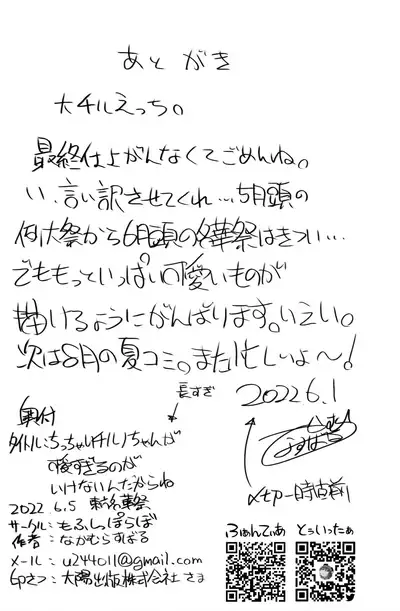 あとがき
大チルえっち。
最終仕上がんなくてごめんね。
い、言い訳させてくれ…5月頭の
例大祭から6月頭の名華祭はきつい…
でももっといっぱい可愛いものが
描けるようにがんばります。いえい。
次は8月の夏コミ。また忙しいよ〜!
2022 6.1
長すぎ
奥付
タイトル:ちっちゃいチルノちゃんが
可愛すぎるのが
いけないんだからね
2022.6.5 東方名華祭
サークル:もふしっぽらぼ
作者:なかむらすばる
メール:u244011@gmail.com
印さつ:大陽出版株式会社さま
〆切一時間前
ふぁんてぃあ
とぅいったぁ